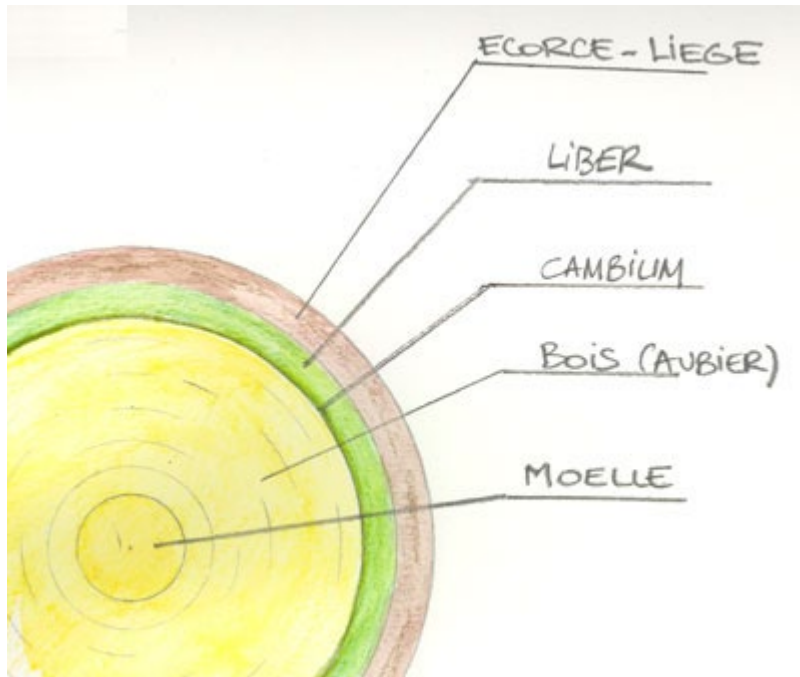 ECORCE - LIEGE
LIBER
CAMBIUM
BOIS (AUBIER)
MOELLE